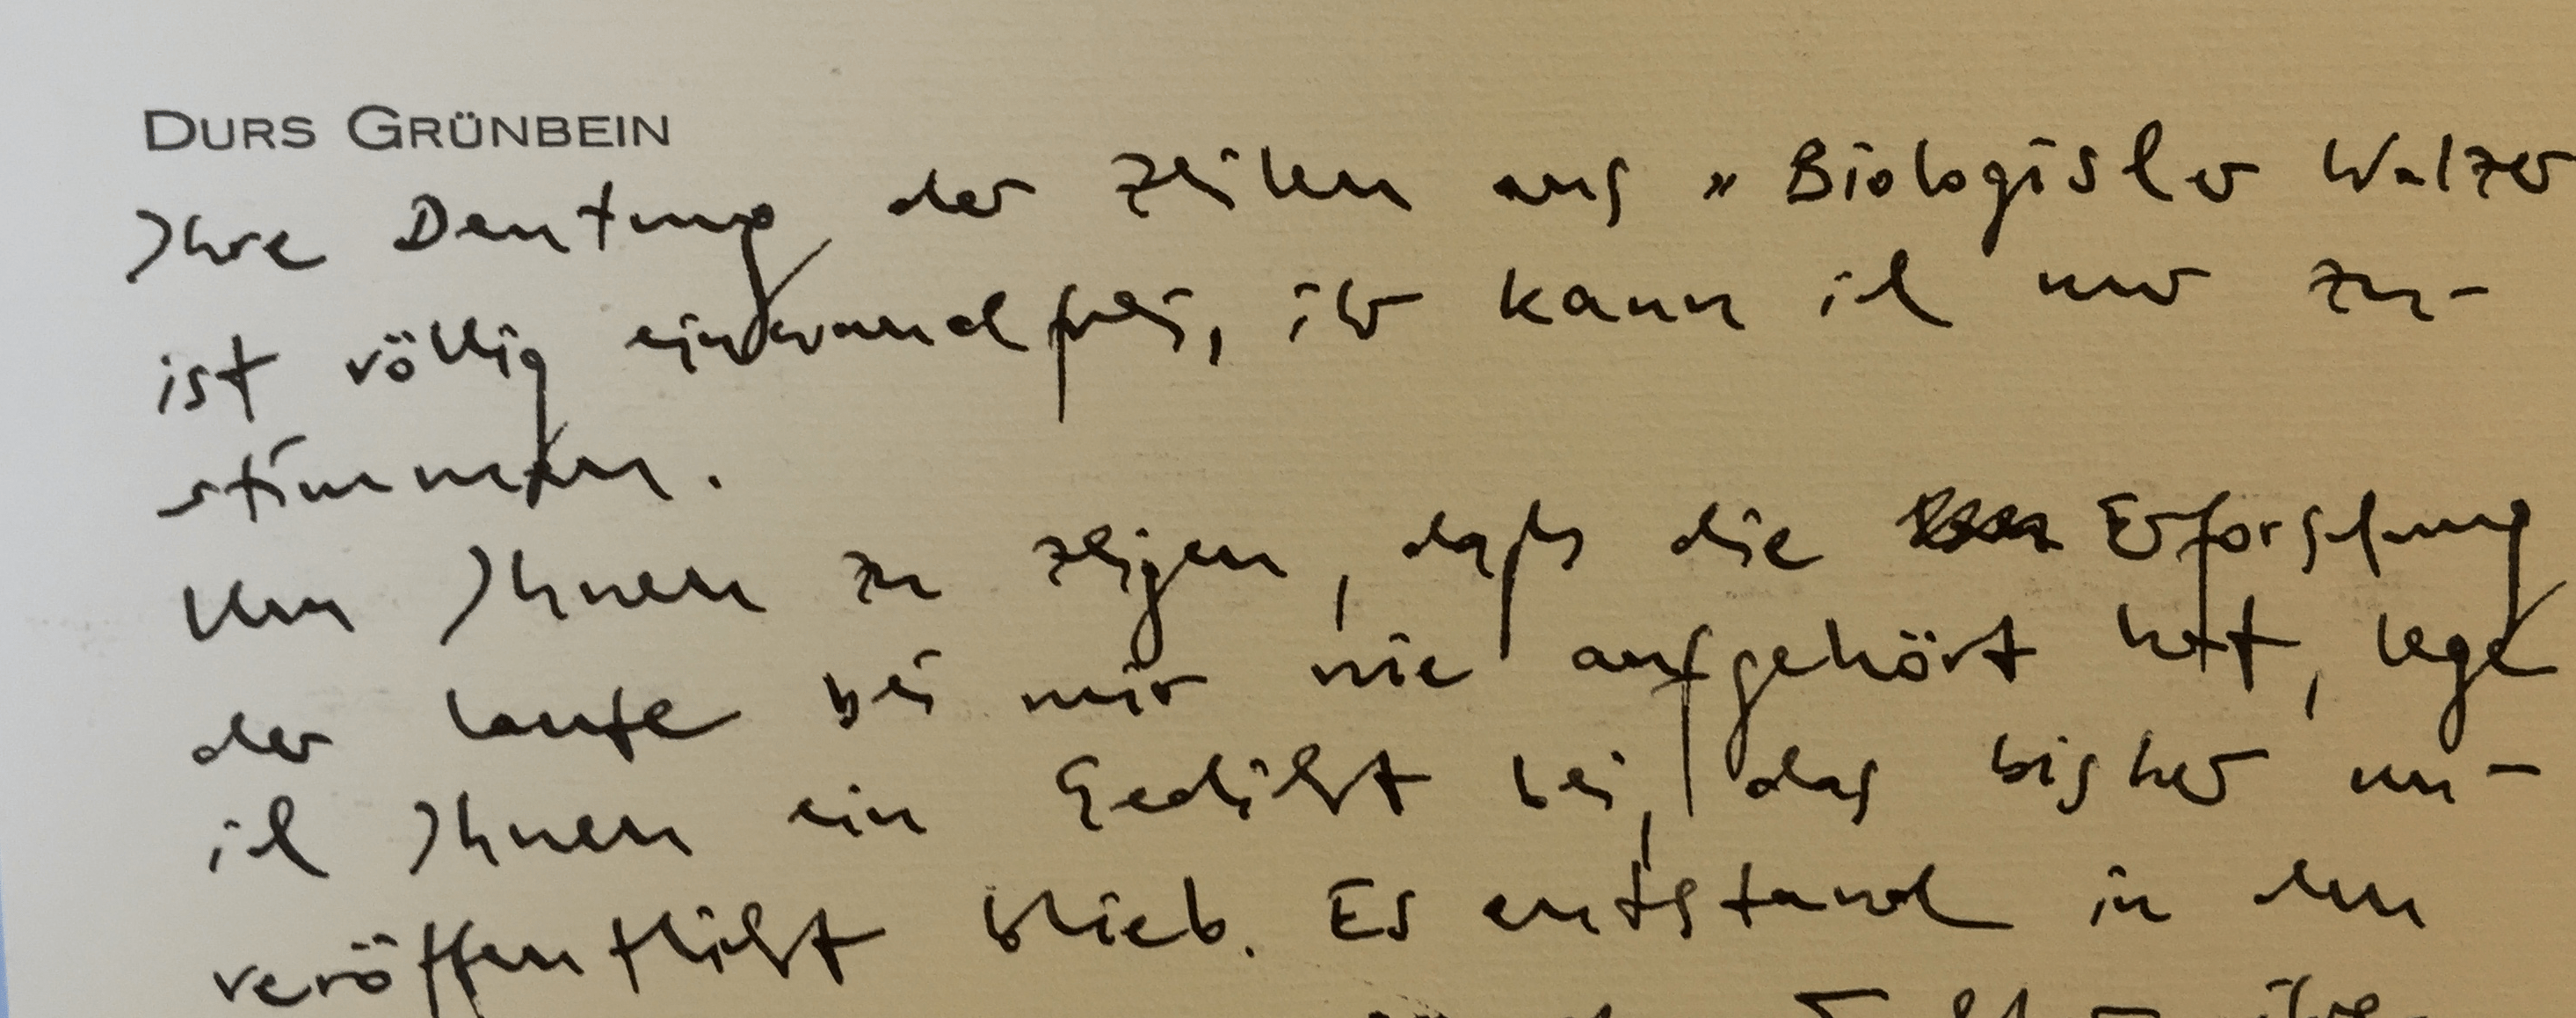 DURS GRÜNBEIN
Ihre Deutung der Zeilen aus „Biologischer Walzer
ist völlig einwandfrei, ihr kann ich nur zu-
stimmen.
Um Ihnen zu zeigen, daß die Erforschung
der Laute bei mir nie aufgehört hat, lege
ich Ihnen ein Gedicht bei, das bisher un-
veröffentlicht blieb. Es entstand in den